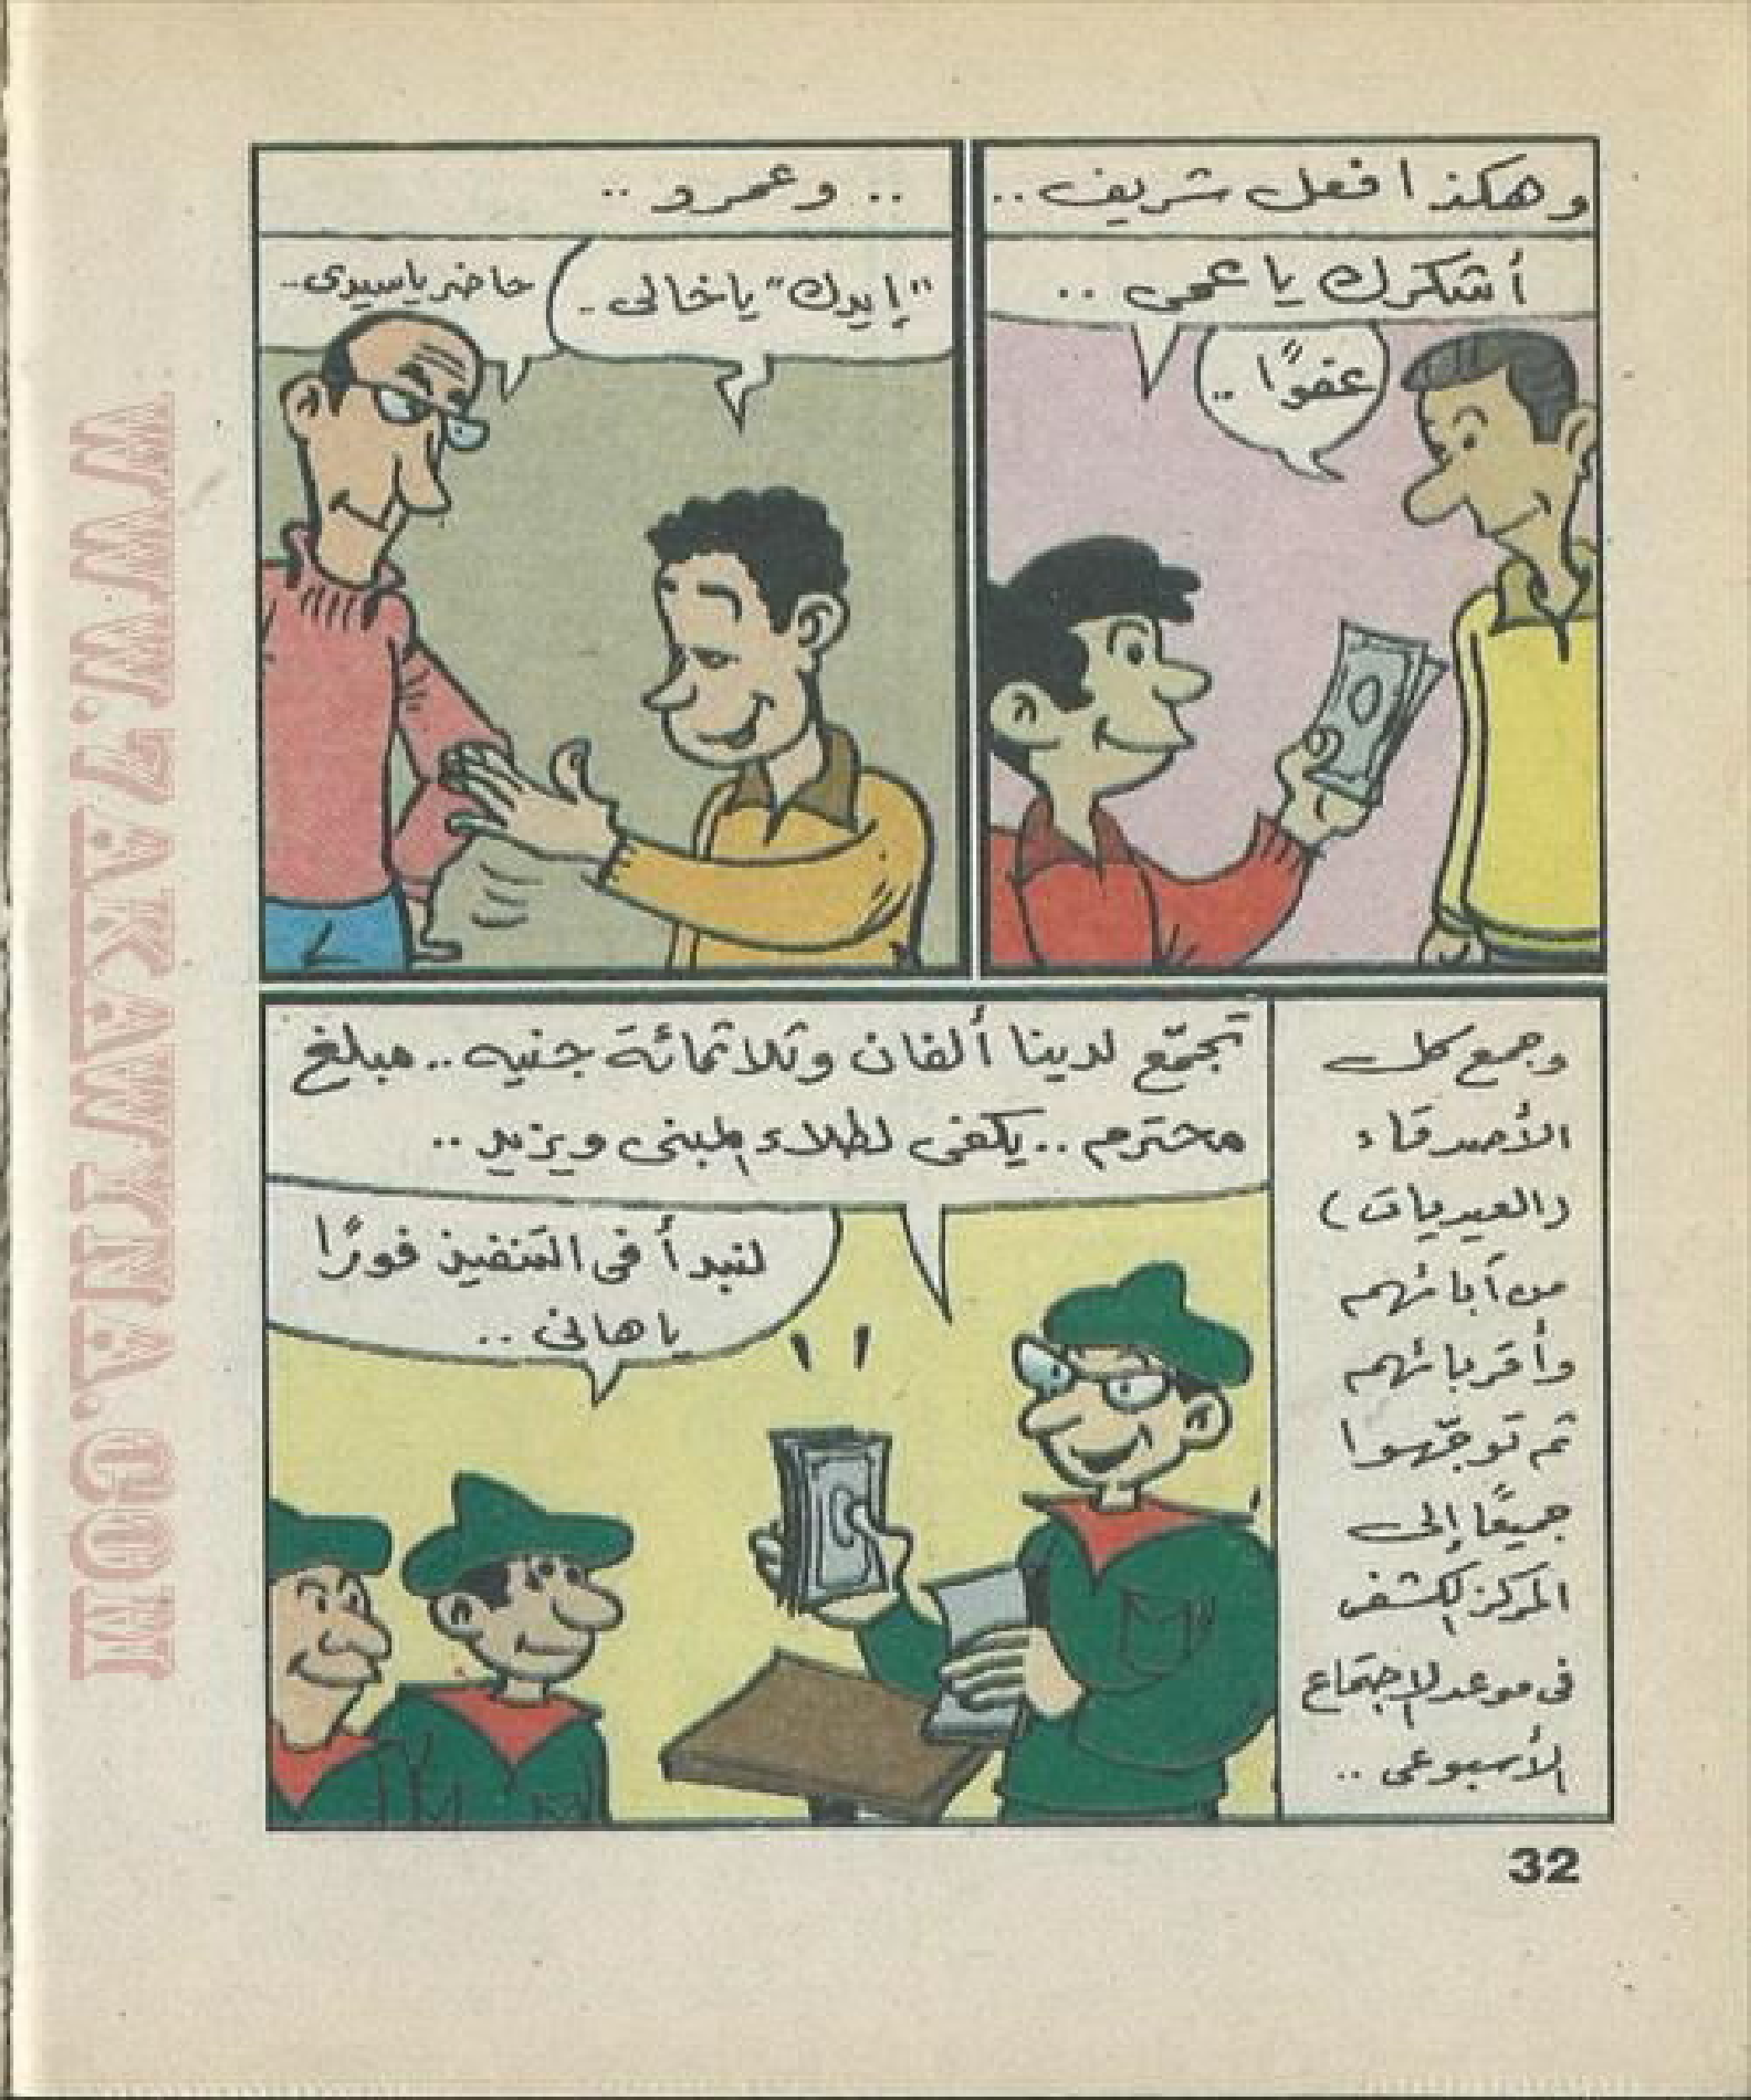 وهكذا فعل شريف..
أشكرك يا عمى ..
عفوًا ..
.. وعمرو ..
"إيدك" يا خالى -
حاضر ياسيدى -
وجمع كل
الأصدقاء
(العيديات)
من آبائهم
وأقربائهم
ثم توجّهوا
جميعًا إلى
المركز الكشفى
فى موعد الاجتماع
الأسبوعى ..
تجمّع لدينا ألفان وثلاثمائة جنيه .. مبلغ
محترم .. يكفى لطلاء المبنى ويزيد ..
لنبدأ فى التنفيذ فورًا
يا هانى ..
32